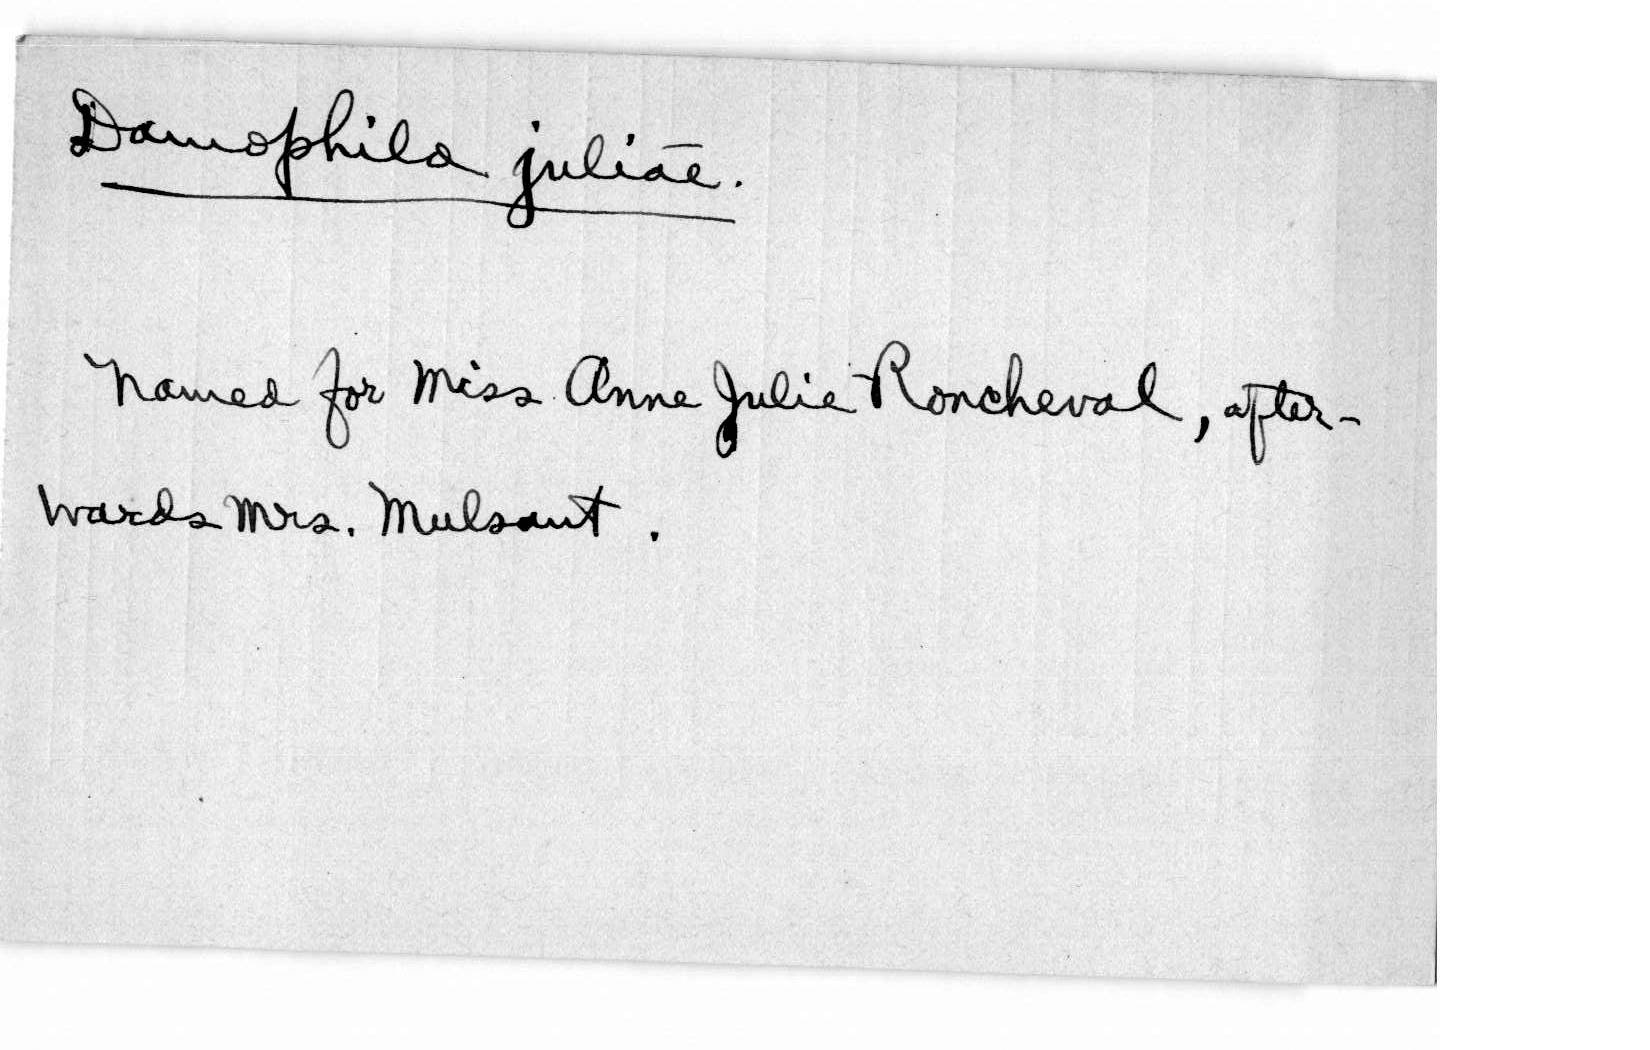 Damophila juliae.
Named for Miss Anne Julie Roncheval, after-
wards Mrs. Mulsant.